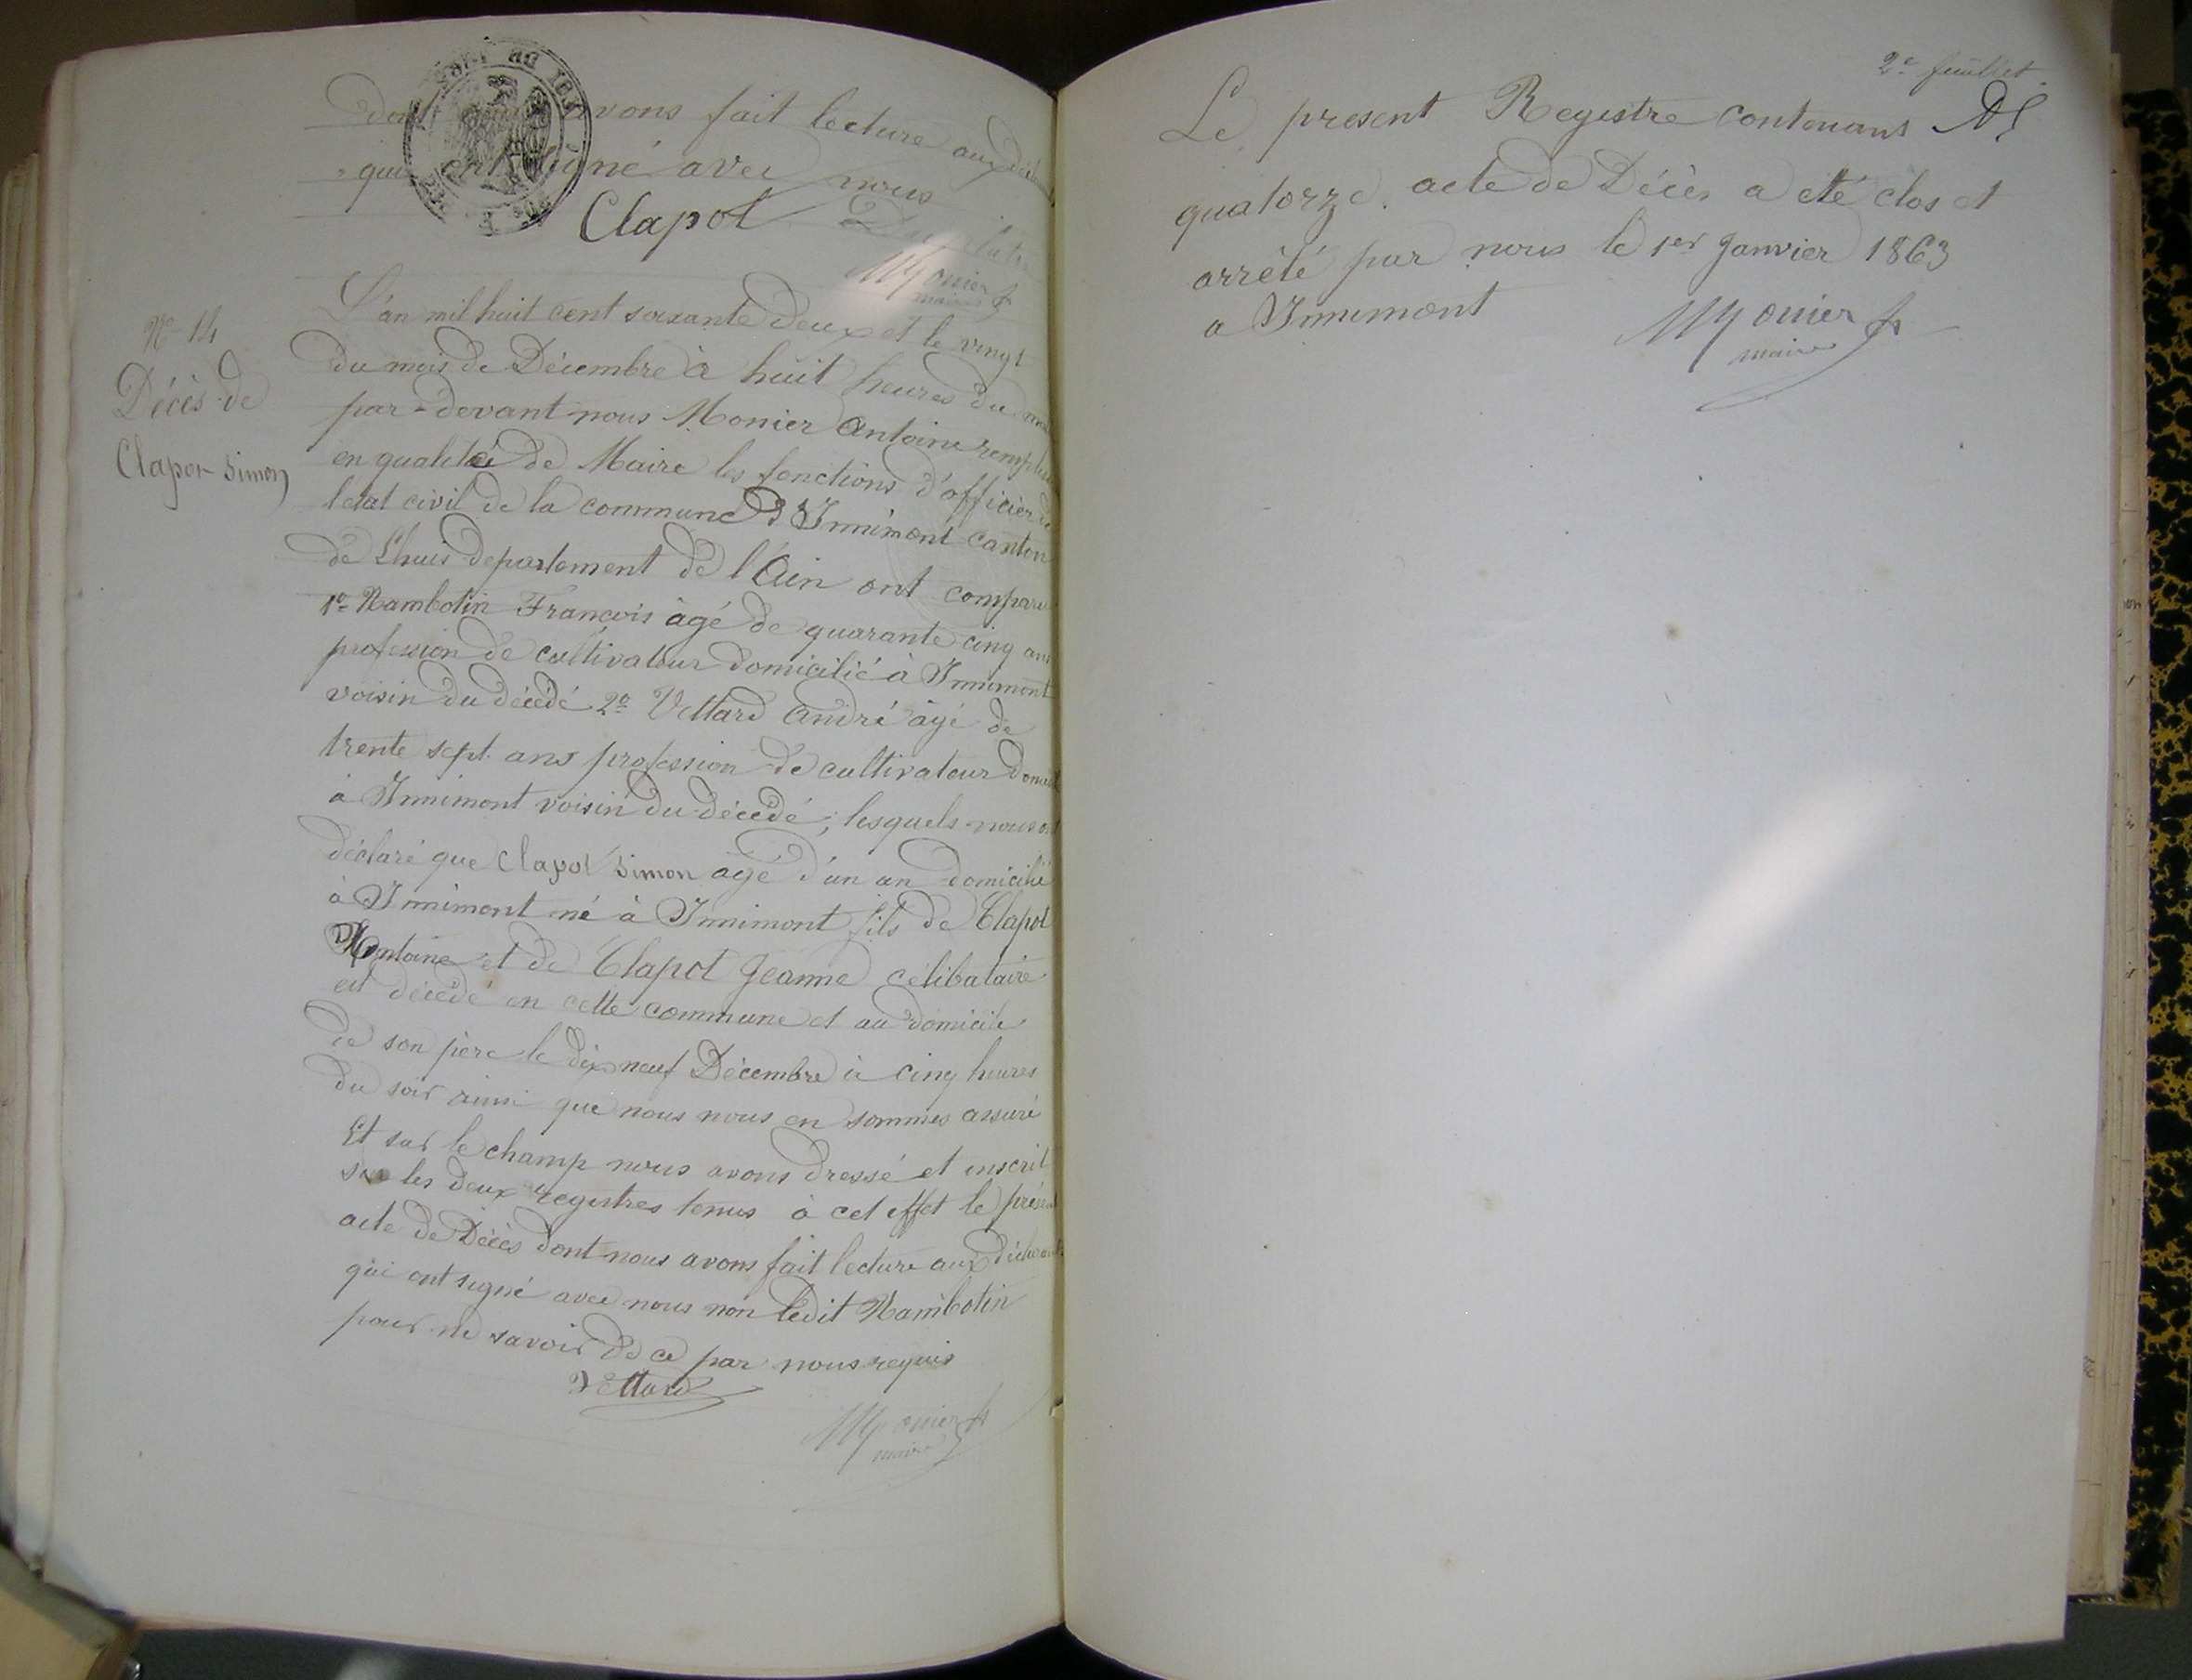 dont nous avons fait lecture aux
qui ont signé avec nous
Clapot
Monier
maire
N° 14
Décès de
Clapot Simon
L'an mil huit cent soixante deux et le vingt
du mois de Décembre à huit heures du
par-devant nous Monier Antoine
en qualité de Maire les fonctions d'officier de
letat civil de la commune d'Innimont canton
de Lhuis departement de l'Ain ont comparu
1° Rambotin François àgé de quarante cinq ans
profession de cultivateur domicilié à Innimont
voisin du décédé 2° Vettard André àgé de
trente sept ans profession de cultivateur
à Innimont voisin du décédé; lesquels nous ont
déclaré que Clapot Simon agé d'un an domicilié
à Innimont né à Innimont fils de Clapot
Antoine et de Clapot Jeanne célibataire
est décédé en cette commune et au domicile
de son père le dix neuf Décembre à cinq heures
du soir ainsi que nous nous en sommes assuré
Et sur le champ nous avons dressé et inscrit
sur les deux registres tenus à cet effet le présent
acte de Décès dont nous avons fait lecture aux déclarants
qui ont signé avec nous non ledit Rambotin
pour ne savoir de ce par nous requis
Vettard
Monier
maire
2e feuillet
Le present Registre contenant
quatorze acte de Décès a eté clos et
arrêté par nous le 1er Janvier 1863
a Innimont
Monier
maire